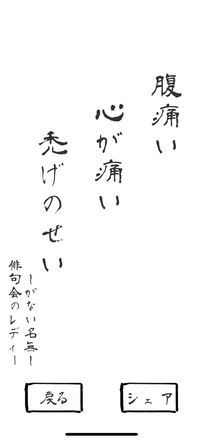 腹痛い
心が痛い
禿げのせい
しがない名無し
俳句会のレディー
戻る
シェア